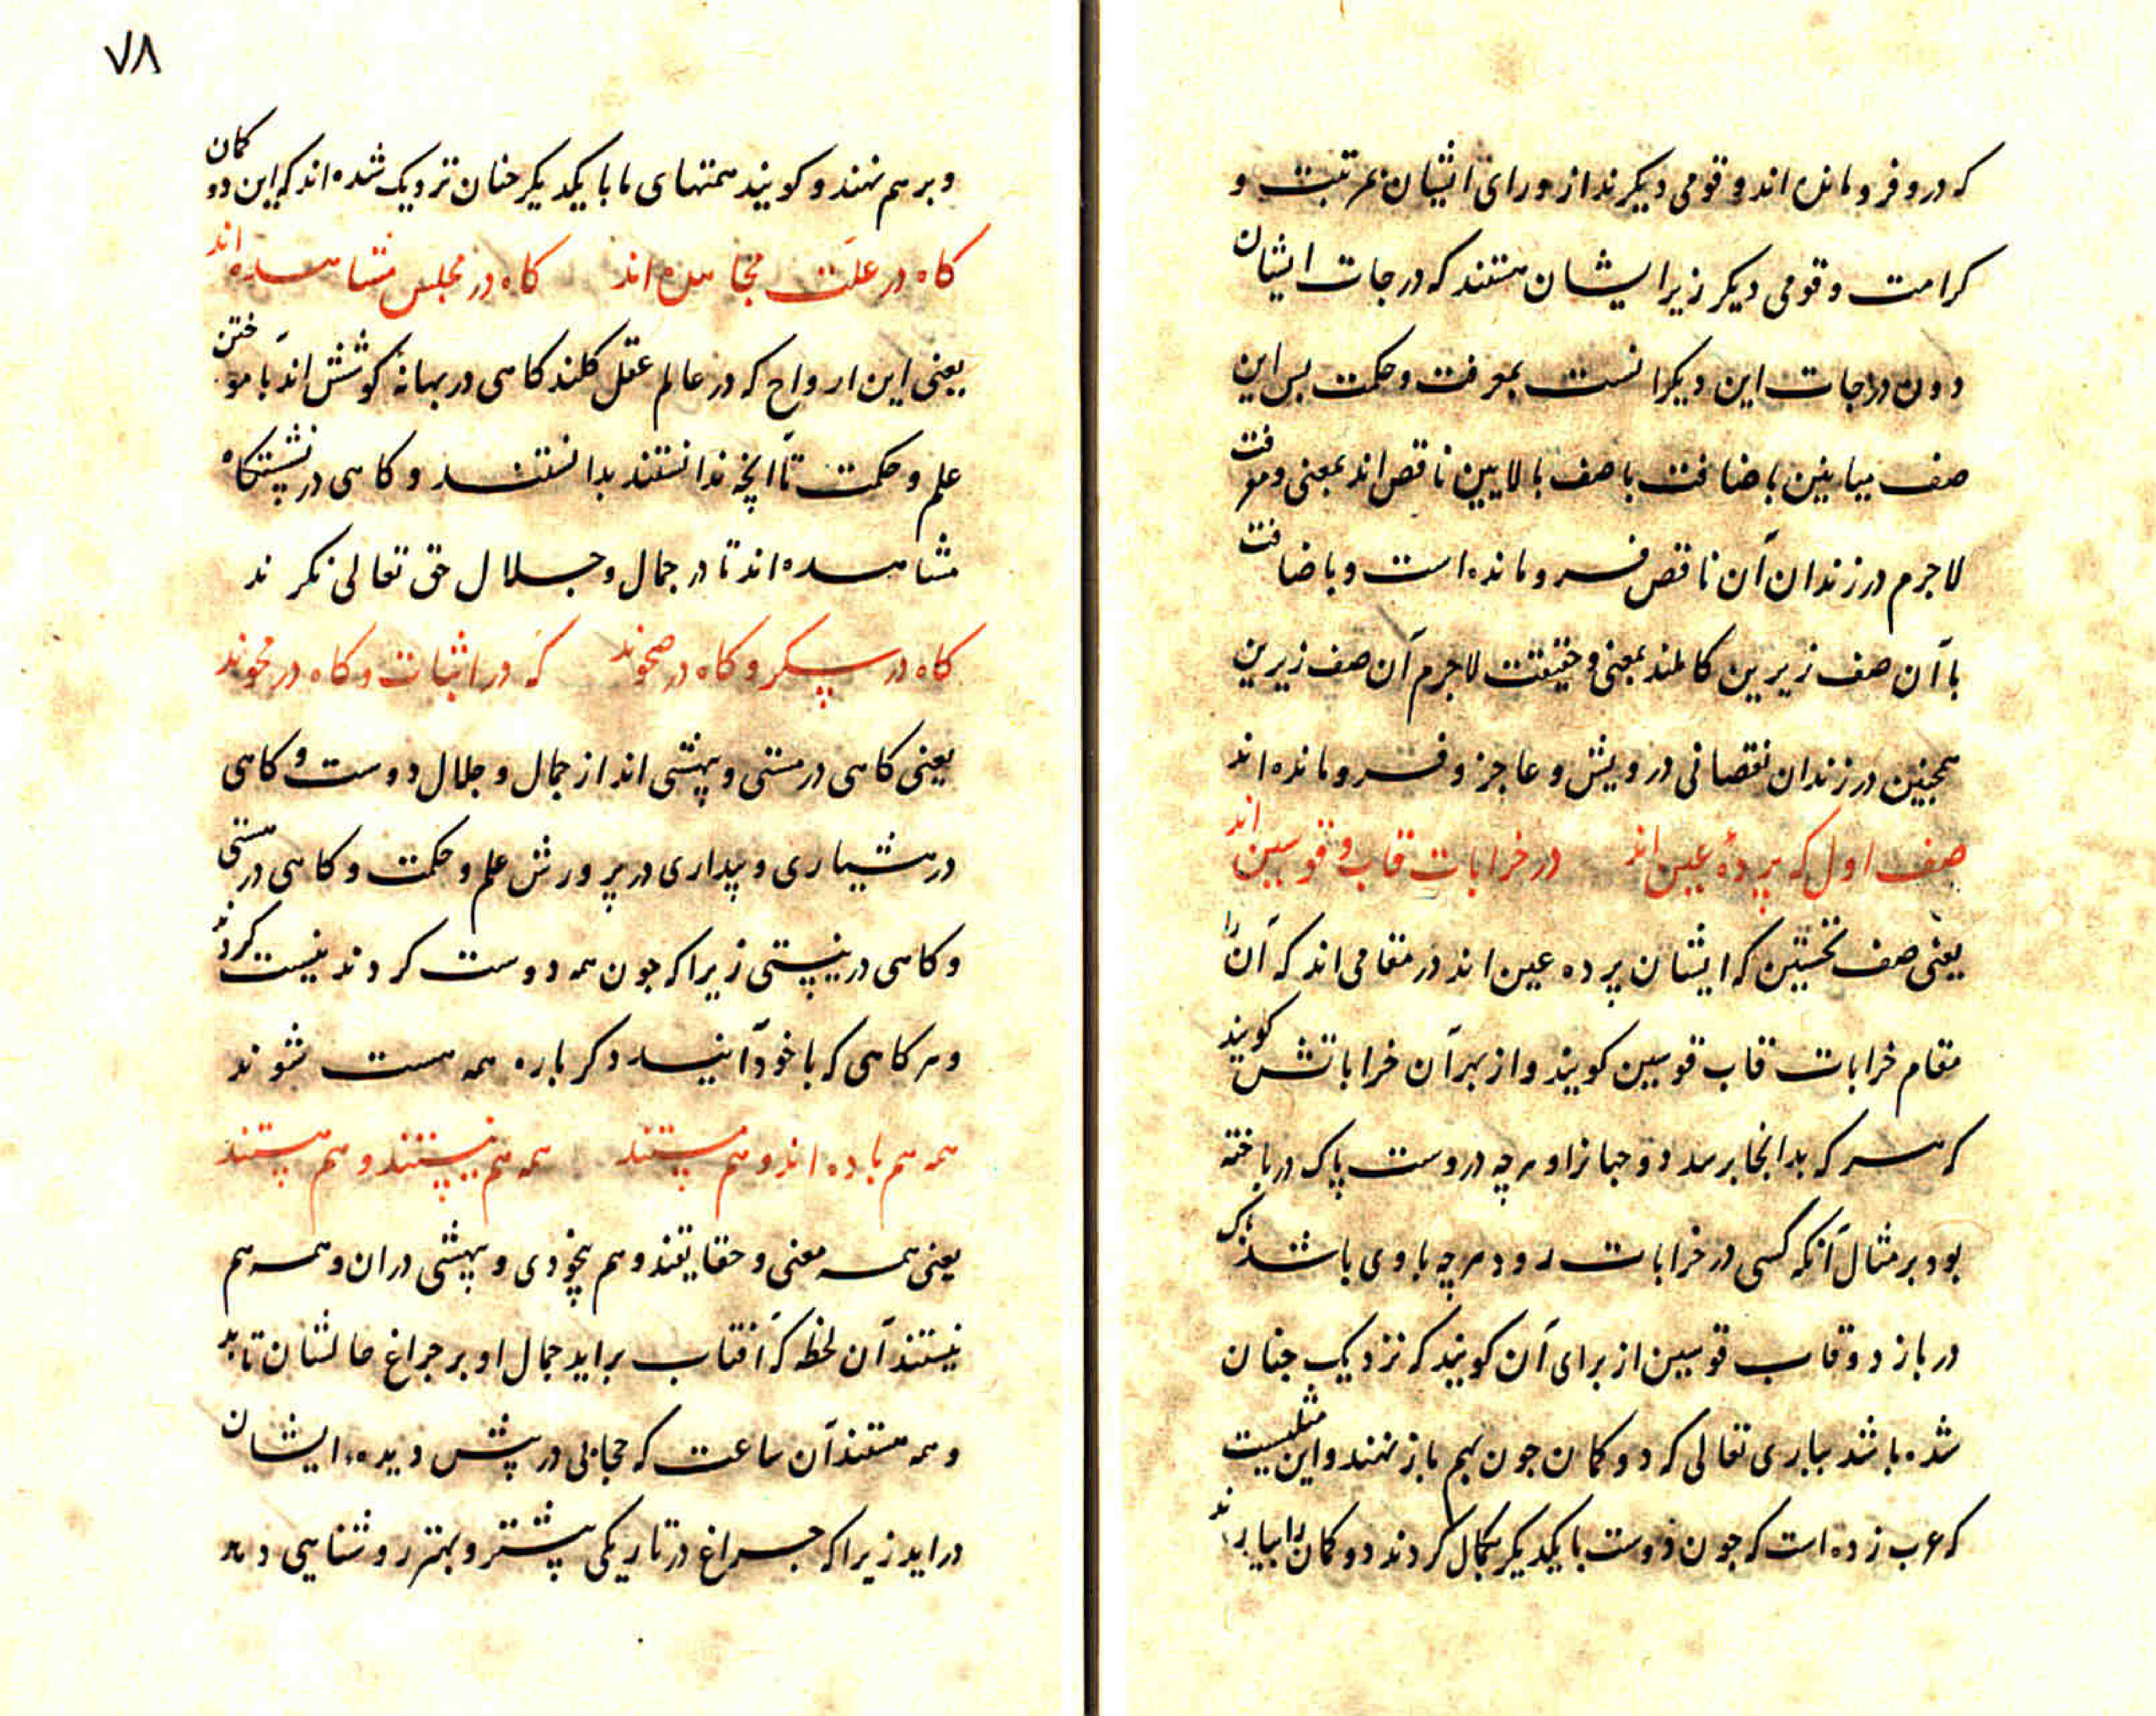 که درو فرو مانده اند و قومی دیکرند از ورای ایشان بمرتبت و
کرامت و قومی دیکر زیر ایشان هستند که درجات ایشان
دون درجات این دیکرانست بمعرفت و حکمت پس این
صف میانین باضافت با صف بالایین ناقص اند بمعنی و معرفت
لاجرم در زندان آن ناقص فرو مانده است و باضافت
با آن صف زیرین کاملند بمعنی و حقیقت لاجرم آن صف زیرین
همجنین در زندان نقصانی درویش و عاجز و فرو مانده اند
صف اول که پردهٔ عین اند در خرابات قاب و قوسین اند
یعنی صف نخستین که ایشان پرده عین اند در مقامی اند که آن را
مقام خرابات قاب قوسین کویند و از بهر آن خراباتش کویند
که هر که بدانجا برسد دو جهانرا و هرچه دروست پاک درباخته
بود بر مثال آنکه کسی در خرابات رود هرچه با وی باشد پاک
دربازد و قاب قوسین از برای آن کویند که نزدیک جنان
شده باشد بباری تعالی که دو کمان جون بهم باز نهند و این مثلیست
که عرب زده است که جون دوست با یکدیکر بکمال کردند دو کمان را بیارند
٧٨
و بر هم نهند و کویند همتهای ما با یکدیکر جنان نزدیک شده اند که این دو کمان
کاه در علت مجاهده اند کاه در مجلس مشاهده اند
یعنی این ارواح که در عالم عقل کلند کاهی در بهانهٔ کوشش اند بآموختن
علم و حکمت تا آنچه ندانستند بدانستند و کاهی در پیشکاه
مشاهده اند تا در جمال و جلال حق تعالی نکرند
کاه در سکر و کاه در صحوند که در اثبات و کاه در محوند
یعنی کاهی در مستی و بیهشی اند از جمال و جلال دوست و کاهی
در هشیاری و بیداری در پرورش علم و حکمت و کاهی در هستی
و کاهی در نیستی زیرا که جون همه دوست کردند نیست کردند
و هر کاهی که با خود آیند دکرباره همه هست شوند
همه هم باده اند و هم مستند همه هم نیستند و هم هستند
یعنی همه معنی و حقایقند و هم بیخودی و بیهشی دران و همه هم
نیستند آن لحظه که آفتاب براید جمال او بر جراغ حالشان تابد
و همه هستند آن ساعت که حجابی در پیش دیده ایشان
دراید زیرا که جراغ در تاریکی بیشتر و بهتر روشنایی دهد